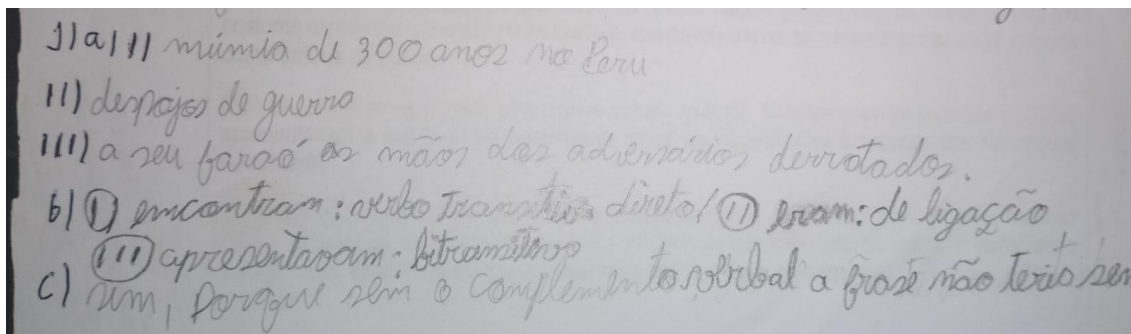 1) a) I) múmia de 300 anos no Peru
II) despojos de guerra
III) a seu faraó as mãos dos adversários derrotados.
b) I) encontram: verbo transitivo direto/ II) eram: de ligação
III) apresentavam: bitransitivo
c) sim, porque sem o complemento verbal a frase não teria sen